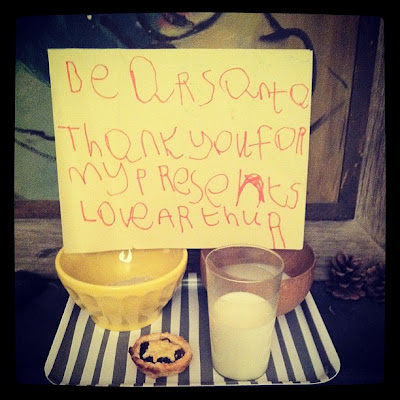 BeArSanta
Thank you for
my presents
Love Arthur